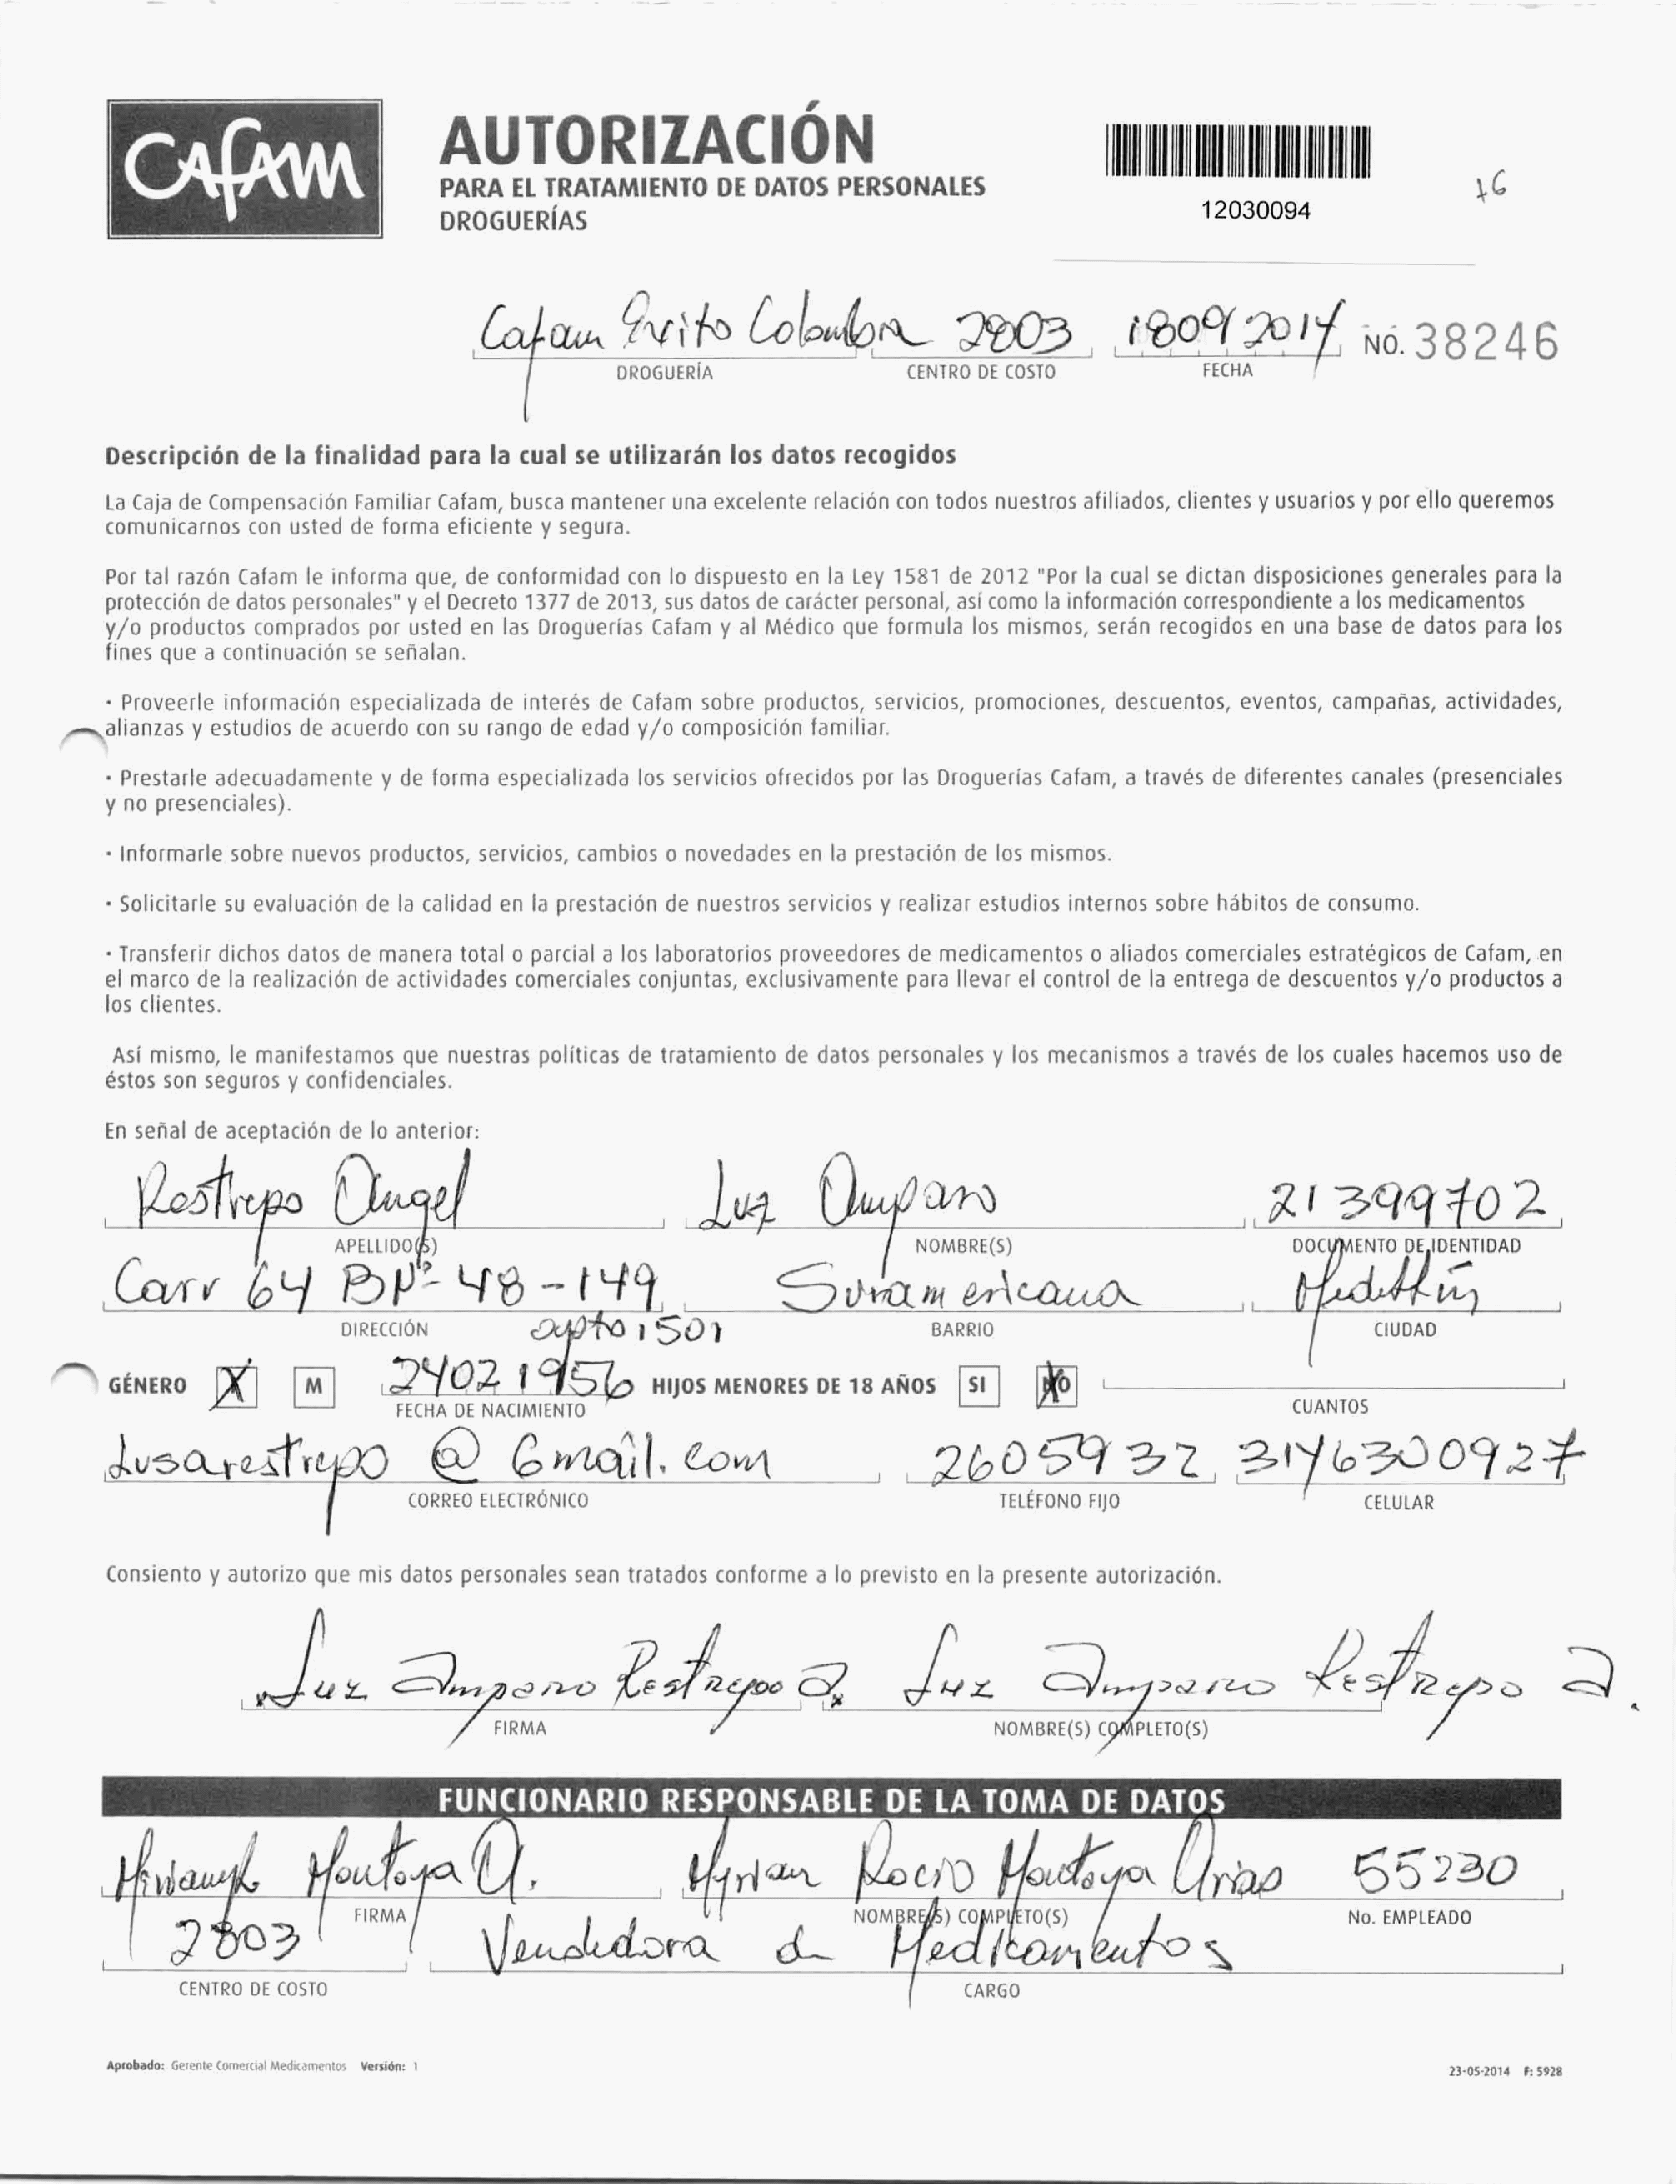 CAFAM
AUTORIZACIÓN
PARA EL TRATAMIENTO DE DATOS PERSONALES
DROGUERÍAS
12030094
16
Cafam Exito Colombia 2803 18092014 NO. 38246
DROGUERÍA CENTRO DE COSTO FECHA
Descripción de la finalidad para la cual se utilizarán los datos recogidos
La Caja de Compensación Familiar Cafam, busca mantener una excelente relación con todos nuestros afiliados, clientes y usuarios y por ello queremos
comunicarnos con usted de forma eficiente y segura.
Por tal razón Cafam le informa que, de conformidad con lo dispuesto en la Ley 1581 de 2012 "Por la cual se dictan disposiciones generales para la
protección de datos personales" y el Decreto 1377 de 2013, sus datos de carácter personal, así como la información correspondiente a los medicamentos
y/o productos comprados por usted en las Droguerías Cafam y al Médico que formula los mismos, serán recogidos en una base de datos para los
fines que a continuación se señalan.
· Proveerle información especializada de interés de Cafam sobre productos, servicios, promociones, descuentos, eventos, campañas, actividades,
alianzas y estudios de acuerdo con su rango de edad y/o composición familiar.
· Prestarle adecuadamente y de forma especializada los servicios ofrecidos por las Droguerías Cafam, a través de diferentes canales (presenciales
y no presenciales).
· Informarle sobre nuevos productos, servicios, cambios o novedades en la prestación de los mismos.
· Solicitarle su evaluación de la calidad en la prestación de nuestros servicios y realizar estudios internos sobre hábitos de consumo.
· Transferir dichos datos de manera total o parcial a los laboratorios proveedores de medicamentos o aliados comerciales estratégicos de Cafam, en
el marco de la realización de actividades comerciales conjuntas, exclusivamente para llevar el control de la entrega de descuentos y/o productos a
los clientes.
Así mismo, le manifestamos que nuestras políticas de tratamiento de datos personales y los mecanismos a través de los cuales hacemos uso de
éstos son seguros y confidenciales.
En señal de aceptación de lo anterior:
Restrepo Angel Luz Amparo 21399702
APELLIDO(S) NOMBRE(S) DOCUMENTO DE IDENTIDAD
Carr 64 B Nº 48-149 Suramericana Medellín
DIRECCIÓN apto 1501 BARRIO CIUDAD
GÉNERO X M 24021956 HIJOS MENORES DE 18 AÑOS SI NO
FECHA DE NACIMIENTO CUANTOS
Lusarestrepo @ Gmail.com 2605932 3146300927
CORREO ELECTRÓNICO TELÉFONO FIJO CELULAR
Consiento y autorizo que mis datos personales sean tratados conforme a lo previsto en la presente autorización.
Luz Amparo Restrepo A. Luz Amparo Restrepo A.
FIRMA NOMBRE(S) COMPLETO(S)
FUNCIONARIO RESPONSABLE DE LA TOMA DE DATOS
Montoya A. Myrian Rocio Montoya Arias 55230
FIRMA NOMBRE(S) COMPLETO(S) No. EMPLEADO
2803 Vendedora de Medicamentos
CENTRO DE COSTO CARGO
Aprobado: Gerente Comercial Medicamentos Versión: 1
23-05-2014 F: 5928